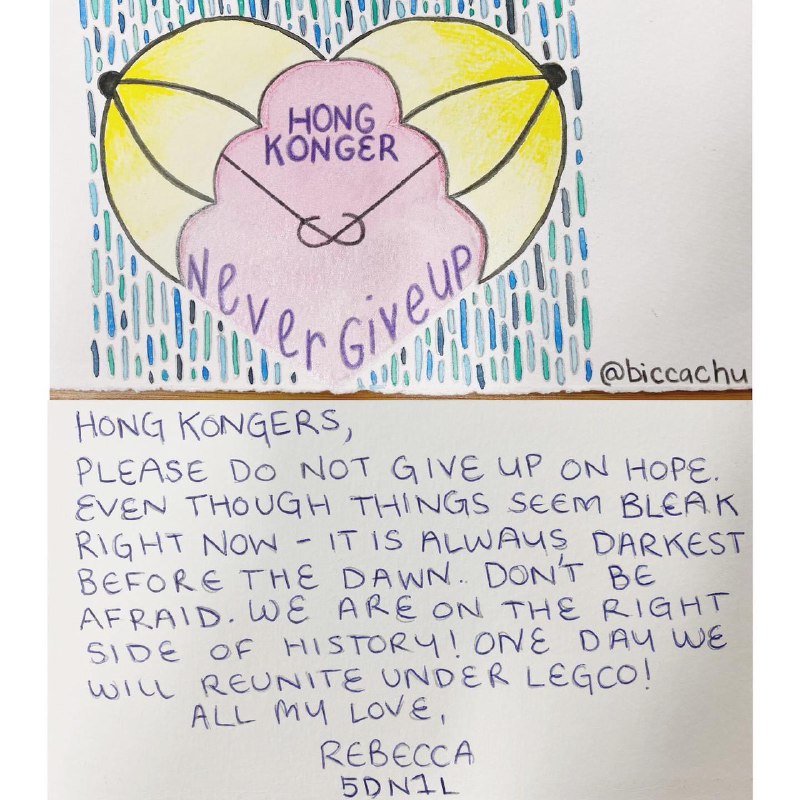 HONG
KONGER
Never Give up
@biccachu
HONG KONGERS,
PLEASE DO NOT GIVE UP ON HOPE.
EVEN THOUGH THINGS SEEM BLEAK
RIGHT NOW - IT IS ALWAYS DARKEST
BEFORE THE DAWN.. DON'T BE
AFRAID. WE ARE ON THE RIGHT
SIDE OF HISTORY! ONE DAY WE
WILL REUNITE UNDER LEGCO!
ALL MY LOVE,
REBECCA
5DN1L